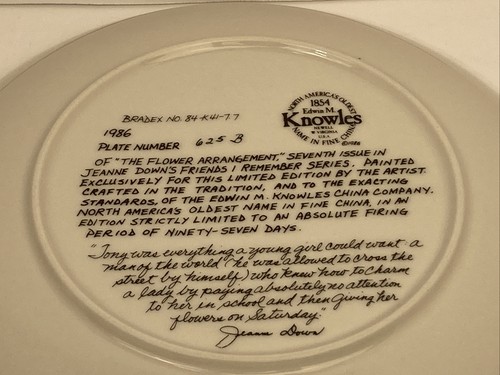 BRADEX NO. 84-K41-7.7
NORTH AMERICA'S OLDEST
1854
Edwin M.
Knowles
NEWELL
W VIRGINIA
U.S.A.
NAME IN FINE CHINA
©1986
1986
PLATE NUMBER 625 B
OF "THE FLOWER ARRANGEMENT," SEVENTH ISSUE IN
JEANNE DOWN'S FRIENDS I REMEMBER SERIES. PAINTED
EXCLUSIVELY FOR THIS LIMITED EDITION BY THE ARTIST.
CRAFTED IN THE TRADITION, AND TO THE EXACTING
STANDARDS, OF THE EDWIN M. KNOWLES CHINA COMPANY.
NORTH AMERICA'S OLDEST NAME IN FINE CHINA, IN AN
EDITION STRICTLY LIMITED TO AN ABSOLUTE FIRING
PERIOD OF NINETY-SEVEN DAYS.
"Tony was everything a young girl could want - a
man of the world (he was allowed to cross the
street by himself) who knew how to charm
a lady by paying absolutely no attention
to her in school and then giving her
flowers on Saturday."
Jeanne Down